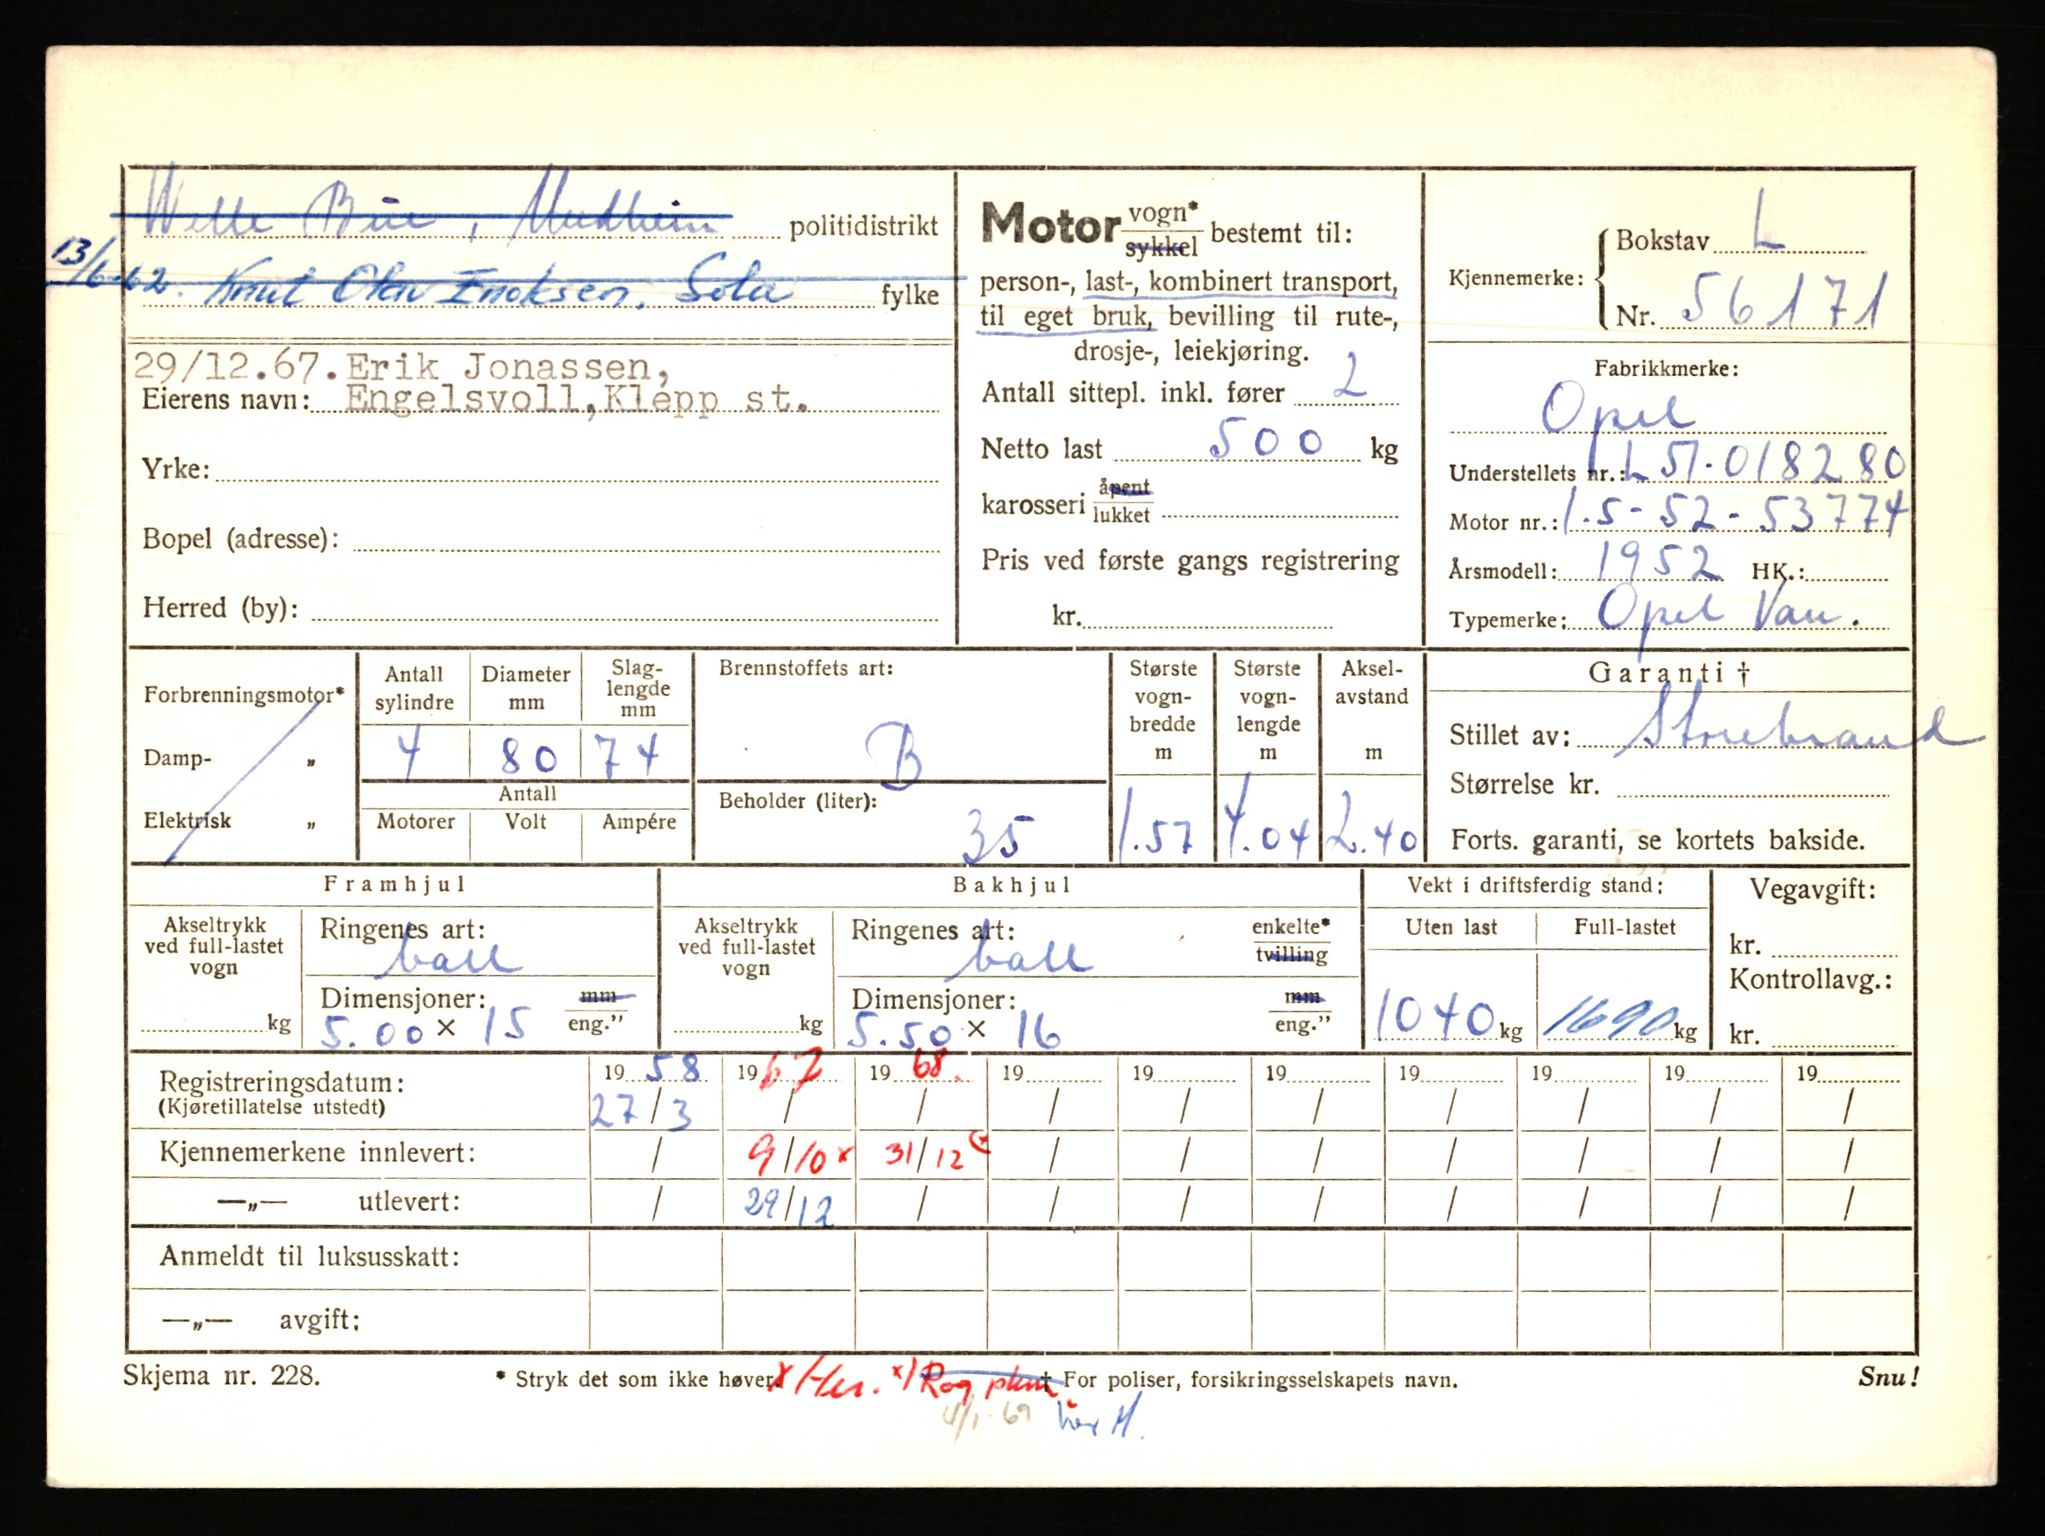 Welle politidistrikt
13/6-62. Knut Olav Enoksen. Sola fylke
29/12.67. Erik Jonassen,
Eierens navn: Engelsvoll, Klepp st.
Yrke:
Bopel (adresse):
Herred (by):
Motor vogn* sykkel bestemt til:
person-, last-, kombinert transport,
til eget bruk, bevilling til rute-,
drosje-, leiekjøring.
Antall sittepl. inkl. fører 2
Netto last 500 kg
karosseri åpent lukket
Pris ved første gangs registrering
kr.
Kjennemerke: Bokstav L
Nr. 56171
Fabrikkmerke:
Opel
Understellets nr.: L 51-018280
Motor nr.: 1.5-52-53774
Årsmodell: 1952 HK.:
Typemerke: Opel Van.
Forbrenningsmotor*
Damp- „
Elektrisk „
Antall sylindre Diameter mm Slaglengde mm
4 80 74
Antall
Motorer Volt Ampére
Brennstoffets art:
B
Beholder (liter):
35
Største vogn- bredde m 1.57
Største vogn- lengde m 4.04
Aksel- avstand m 2.40
Garanti †
Stillet av: Storebrand
Størrelse kr.
Forts. garanti, se kortets bakside.
Framhjul
Akseltrykk ved full-lastet vogn kg
Ringenes art: ball
Dimensjoner: mm
5.00 × 15 eng.”
Bakhjul
Akseltrykk ved full-lastet vogn kg
Ringenes art: ball enkelte* tvilling
Dimensjoner: mm
5.50 × 16 eng.”
Vekt i driftsferdig stand:
Uten last Full-lastet
1040 kg 1690 kg
Vegavgift:
kr.
Kontrollavg.:
kr.
Registreringsdatum: 19 58 19 67 19 68. 19 19 19 19 19 19 19
(Kjøretillatelse utstedt) 27/3 / / / / / / / / /
Kjennemerkene innlevert: / 9/10 x 31/12 / / / / / / /
—„— utlevert: / 29/12 / / / / / / / /
Anmeldt til luksusskatt:
—„— avgift:
Skjema nr. 228. * Stryk det som ikke høver. † For poliser, forsikringsselskapets navn. Snu!
x/ Her. x/ Rog
4/1-69